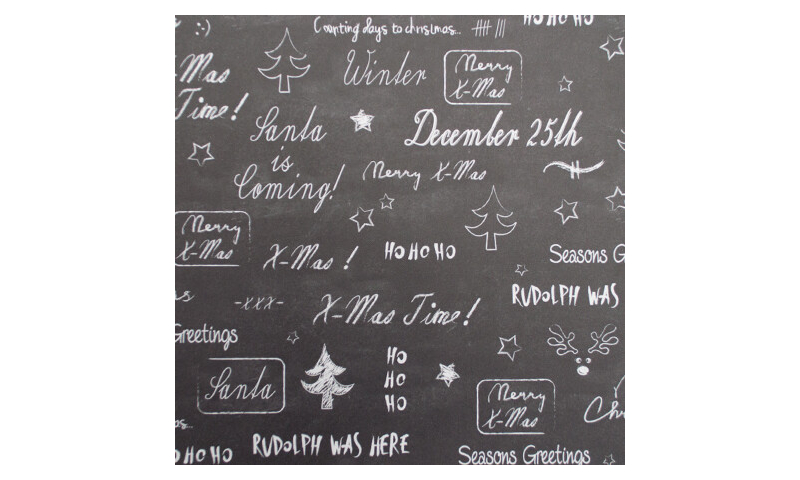 :-)
Counting days to christmas...
HO HO HO
X-Mas
Time!
Winter
Merry
X-Mas
Santa
is
Coming!
December 25th
Merry X-Mas
Merry
X-Mas
X-Mas !
HO HO HO
Seasons G
RUDOLPH WAS
-xxx-
X-Mas Time!
Greetings
Santa
HO
HO
HO
Merry
X-Mas
Ch
HO HO
RUDOLPH WAS HERE
Seasons Greetings